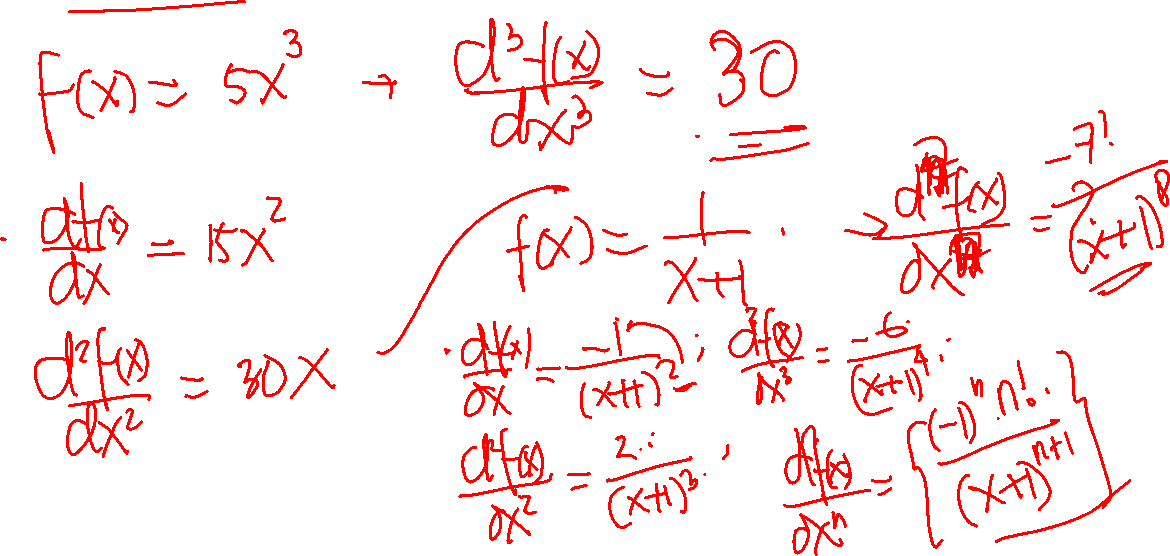 f(x) = 5x³ → d³f(x)/dx³ = 30
df(x)/dx = 15x²
d²f(x)/dx² = 30x
f(x) = 1/(x+1) . → d⁷f(x)/dx⁷ = -7!/(x+1)⁸
df(x)/dx = -1/(x+1)² ; d³f(x)/dx³ = -6/(x+1)⁴ ;
d²f(x)/dx² = 2/(x+1)³ ; dⁿf(x)/dxⁿ = { (-1)ⁿ . n! / (x+1)ⁿ⁺¹ }